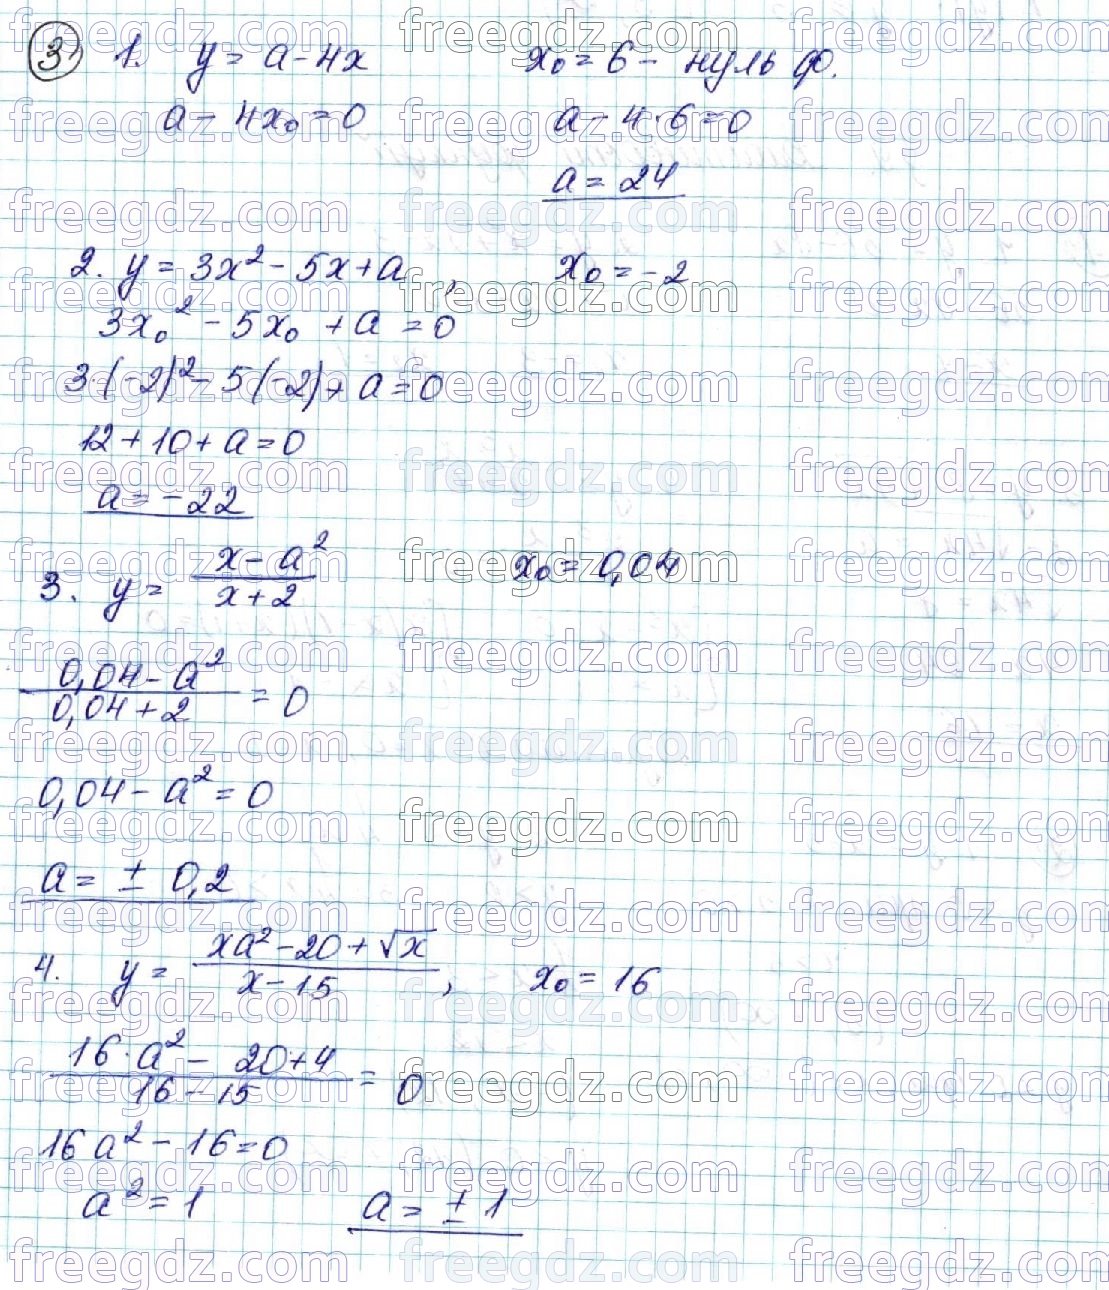 3) 1. y = a - 4x    x₀ = 6 - нуль ф.
a - 4x₀ = 0    a - 4·6 = 0
a = 24
2. y = 3x² - 5x + a,    x₀ = -2
3x₀² - 5x₀ + a = 0
3·(-2)² - 5(-2) + a = 0
12 + 10 + a = 0
a = -22
3. y = (x - a²)/(x + 2)    x₀ = 0,04
(0,04 - a²)/(0,04 + 2) = 0
0,04 - a² = 0
a = ± 0,2
4. y = (xa² - 20 + √x)/(x - 15),    x₀ = 16
(16·a² - 20 + 4)/(16 - 15) = 0
16a² - 16 = 0
a² = 1    a = ± 1
freegdz.com